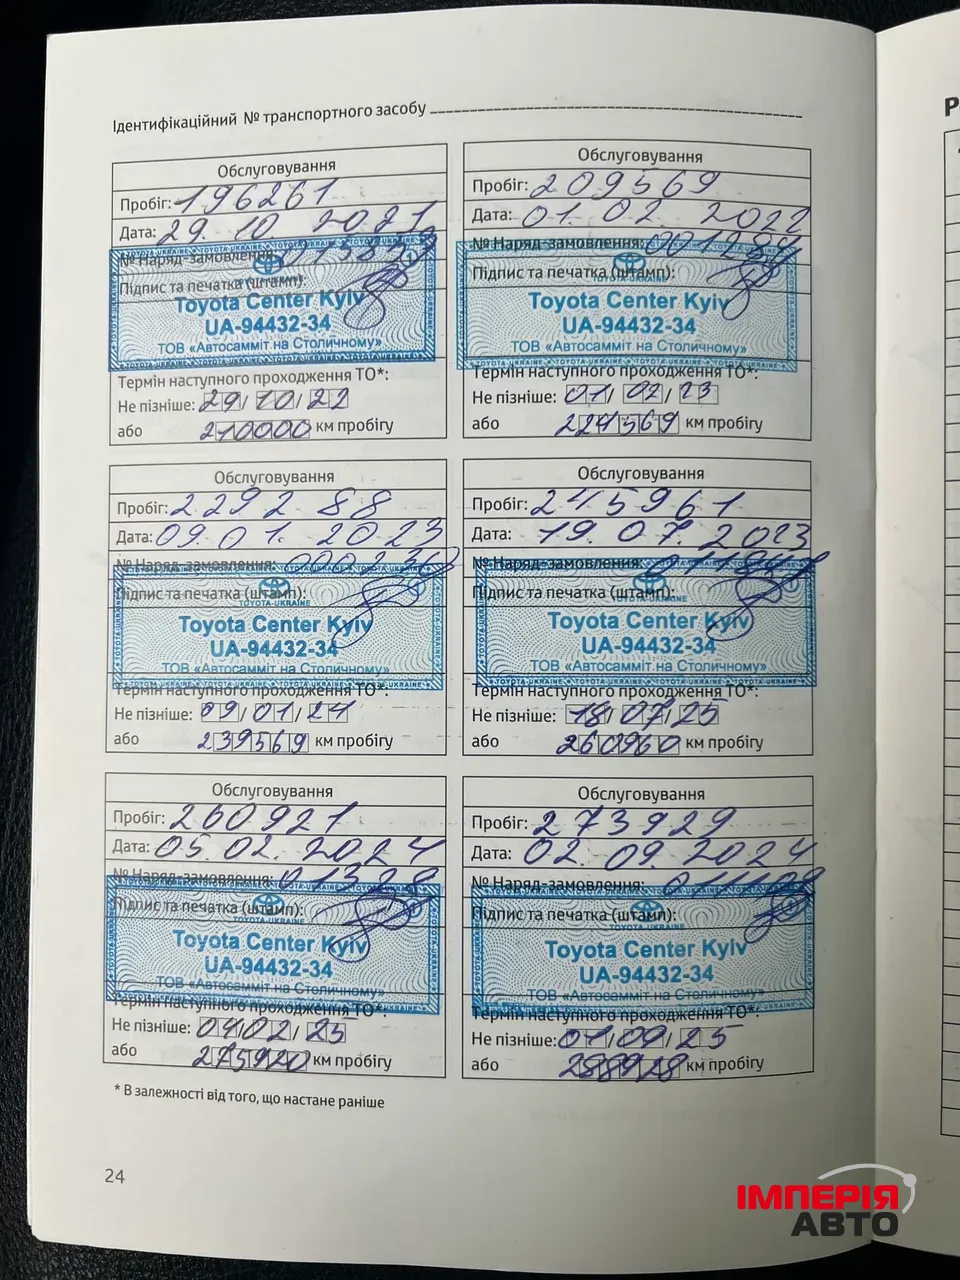 Ідентифікаційний № транспортного засобу
Обслуговування
Пробіг: 196261
Дата: 29. 10. 2021
№ Наряд-замовлення:
Підпис та печатка (штамп):
Toyota Center Kyiv
UA-94432-34
ТОВ «Автосамміт на Столичному»
Термін наступного проходження ТО*:
Не пізніше: 29/10/22
або 210000 км пробігу
Обслуговування
Пробіг: 209569
Дата: 01. 02. 2022
№ Наряд-замовлення:
Підпис та печатка (штамп):
Toyota Center Kyiv
UA-94432-34
ТОВ «Автосамміт на Столичному»
Термін наступного проходження ТО*:
Не пізніше: 01/02/23
або 224569 км пробігу
Обслуговування
Пробіг: 229288
Дата: 09. 01. 2023
№ Наряд-замовлення:
Підпис та печатка (штамп):
TOYOTA-UKRAINE
Toyota Center Kyiv
UA-94432-34
ТОВ «Автосамміт на Столичному»
Термін наступного проходження ТО*:
Не пізніше: 09/01/24
або 239569 км пробігу
Обслуговування
Пробіг: 245961
Дата: 19. 07. 2023
№ Наряд-замовлення:
Підпис та печатка (штамп):
TOYOTA-UKRAINE
Toyota Center Kyiv
UA-94432-34
ТОВ «Автосамміт на Столичному»
Термін наступного проходження ТО*:
Не пізніше: 18/07/25
або 260960 км пробігу
Обслуговування
Пробіг: 260921
Дата: 05. 02. 2024
№ Наряд-замовлення:
Підпис та печатка (штамп):
TOYOTA-UKRAINE
Toyota Center Kyiv
UA-94432-34
ТОВ «Автосамміт на Столичному»
Термін наступного проходження ТО*:
Не пізніше: 04/02/25
або 275920 км пробігу
Обслуговування
Пробіг: 273929
Дата: 02. 09. 2024
№ Наряд-замовлення:
Підпис та печатка (штамп):
TOYOTA-UKRAINE
Toyota Center Kyiv
UA-94432-34
ТОВ «Автосамміт на Столичному»
Термін наступного проходження ТО*:
Не пізніше: 01/09/25
або 288928 км пробігу
* В залежності від того, що настане раніше
24
ІМПЕРІЯ
АВТО